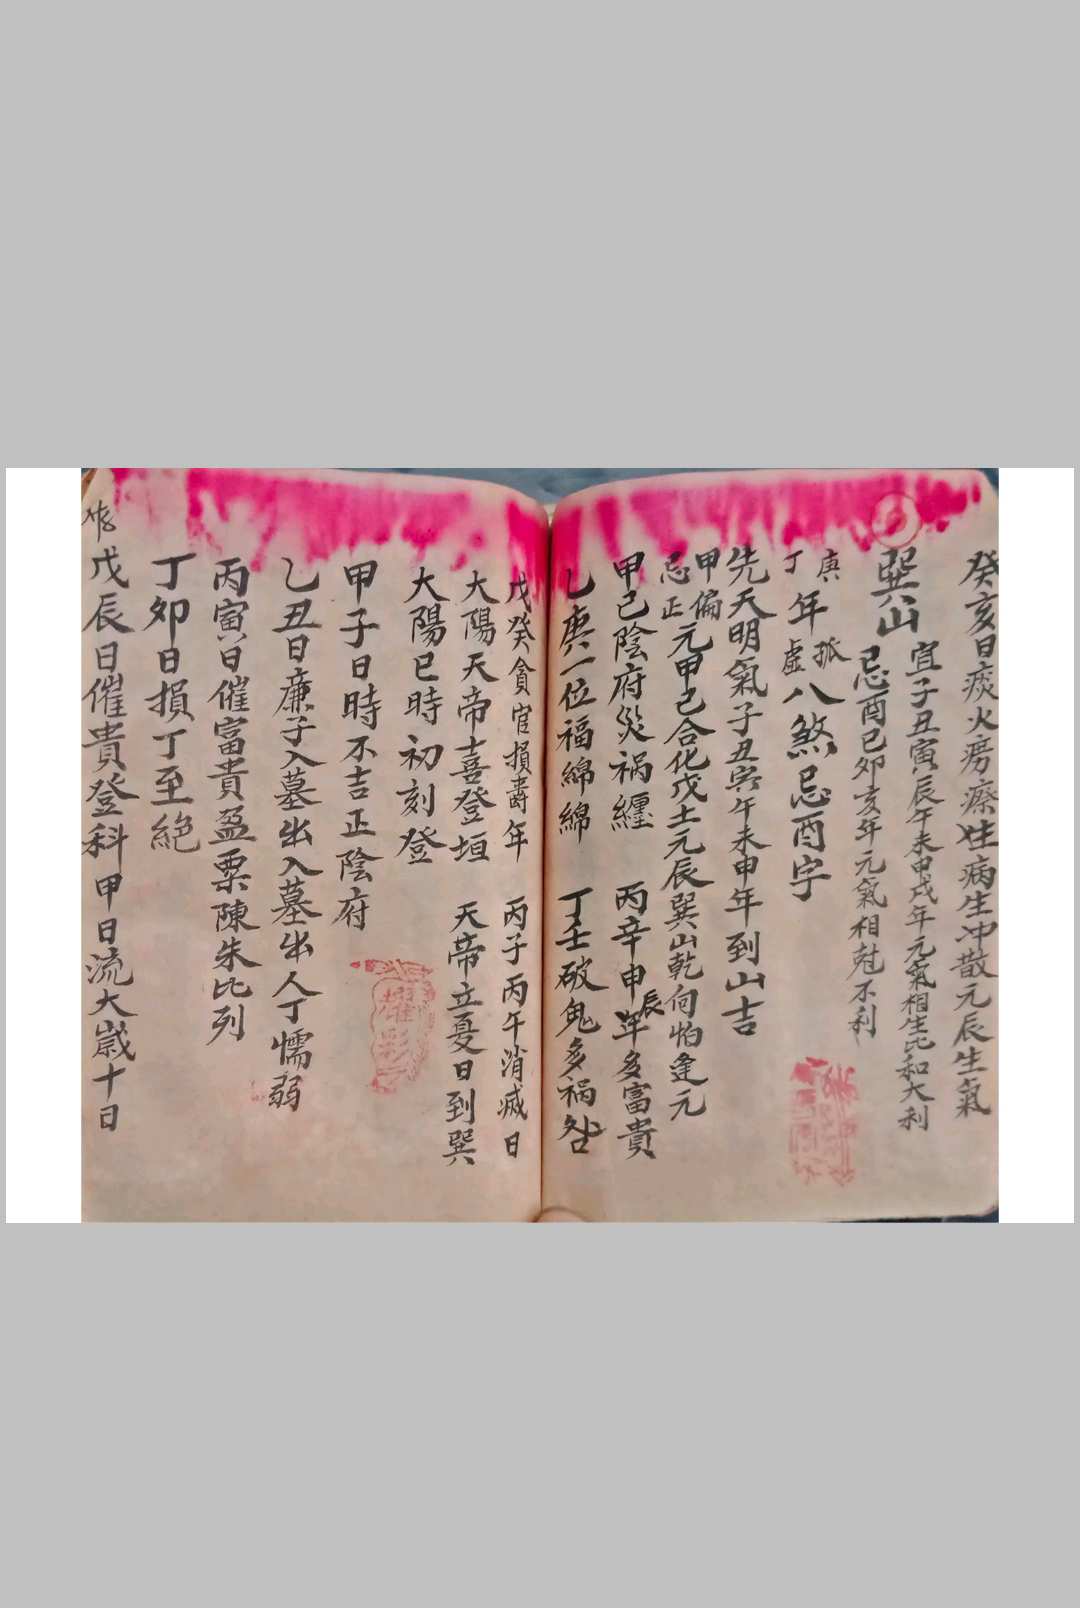 癸亥日痰火癆瘵性病生冲散元辰生氣
巽山
宜子丑寅辰午未申戌年元氣相生比和大利
忌酉巳卯亥年元氣相尅不利
庚丁年孤虛八煞忌酉字
先天明氣子丑寅午未申年到山吉
甲偏忌正元甲己合化戊土元辰巽山乾向怕逢元
甲己陰府災禍纏 丙辛申辰年多富貴
乙庚一位福綿綿 丁壬破鬼多禍
戊癸貪官損壽年 丙子丙午消滅日
大陽天帝喜登垣 天帝立夏日到巽
大陽巳時初刻登
甲子日時不吉正陰府
乙丑日廉子入墓出入墓出人丁懦弱
丙寅日催富貴盈粟陳朱比列
丁卯日損丁至絕
戊辰日催貴登科甲日流大歲十日